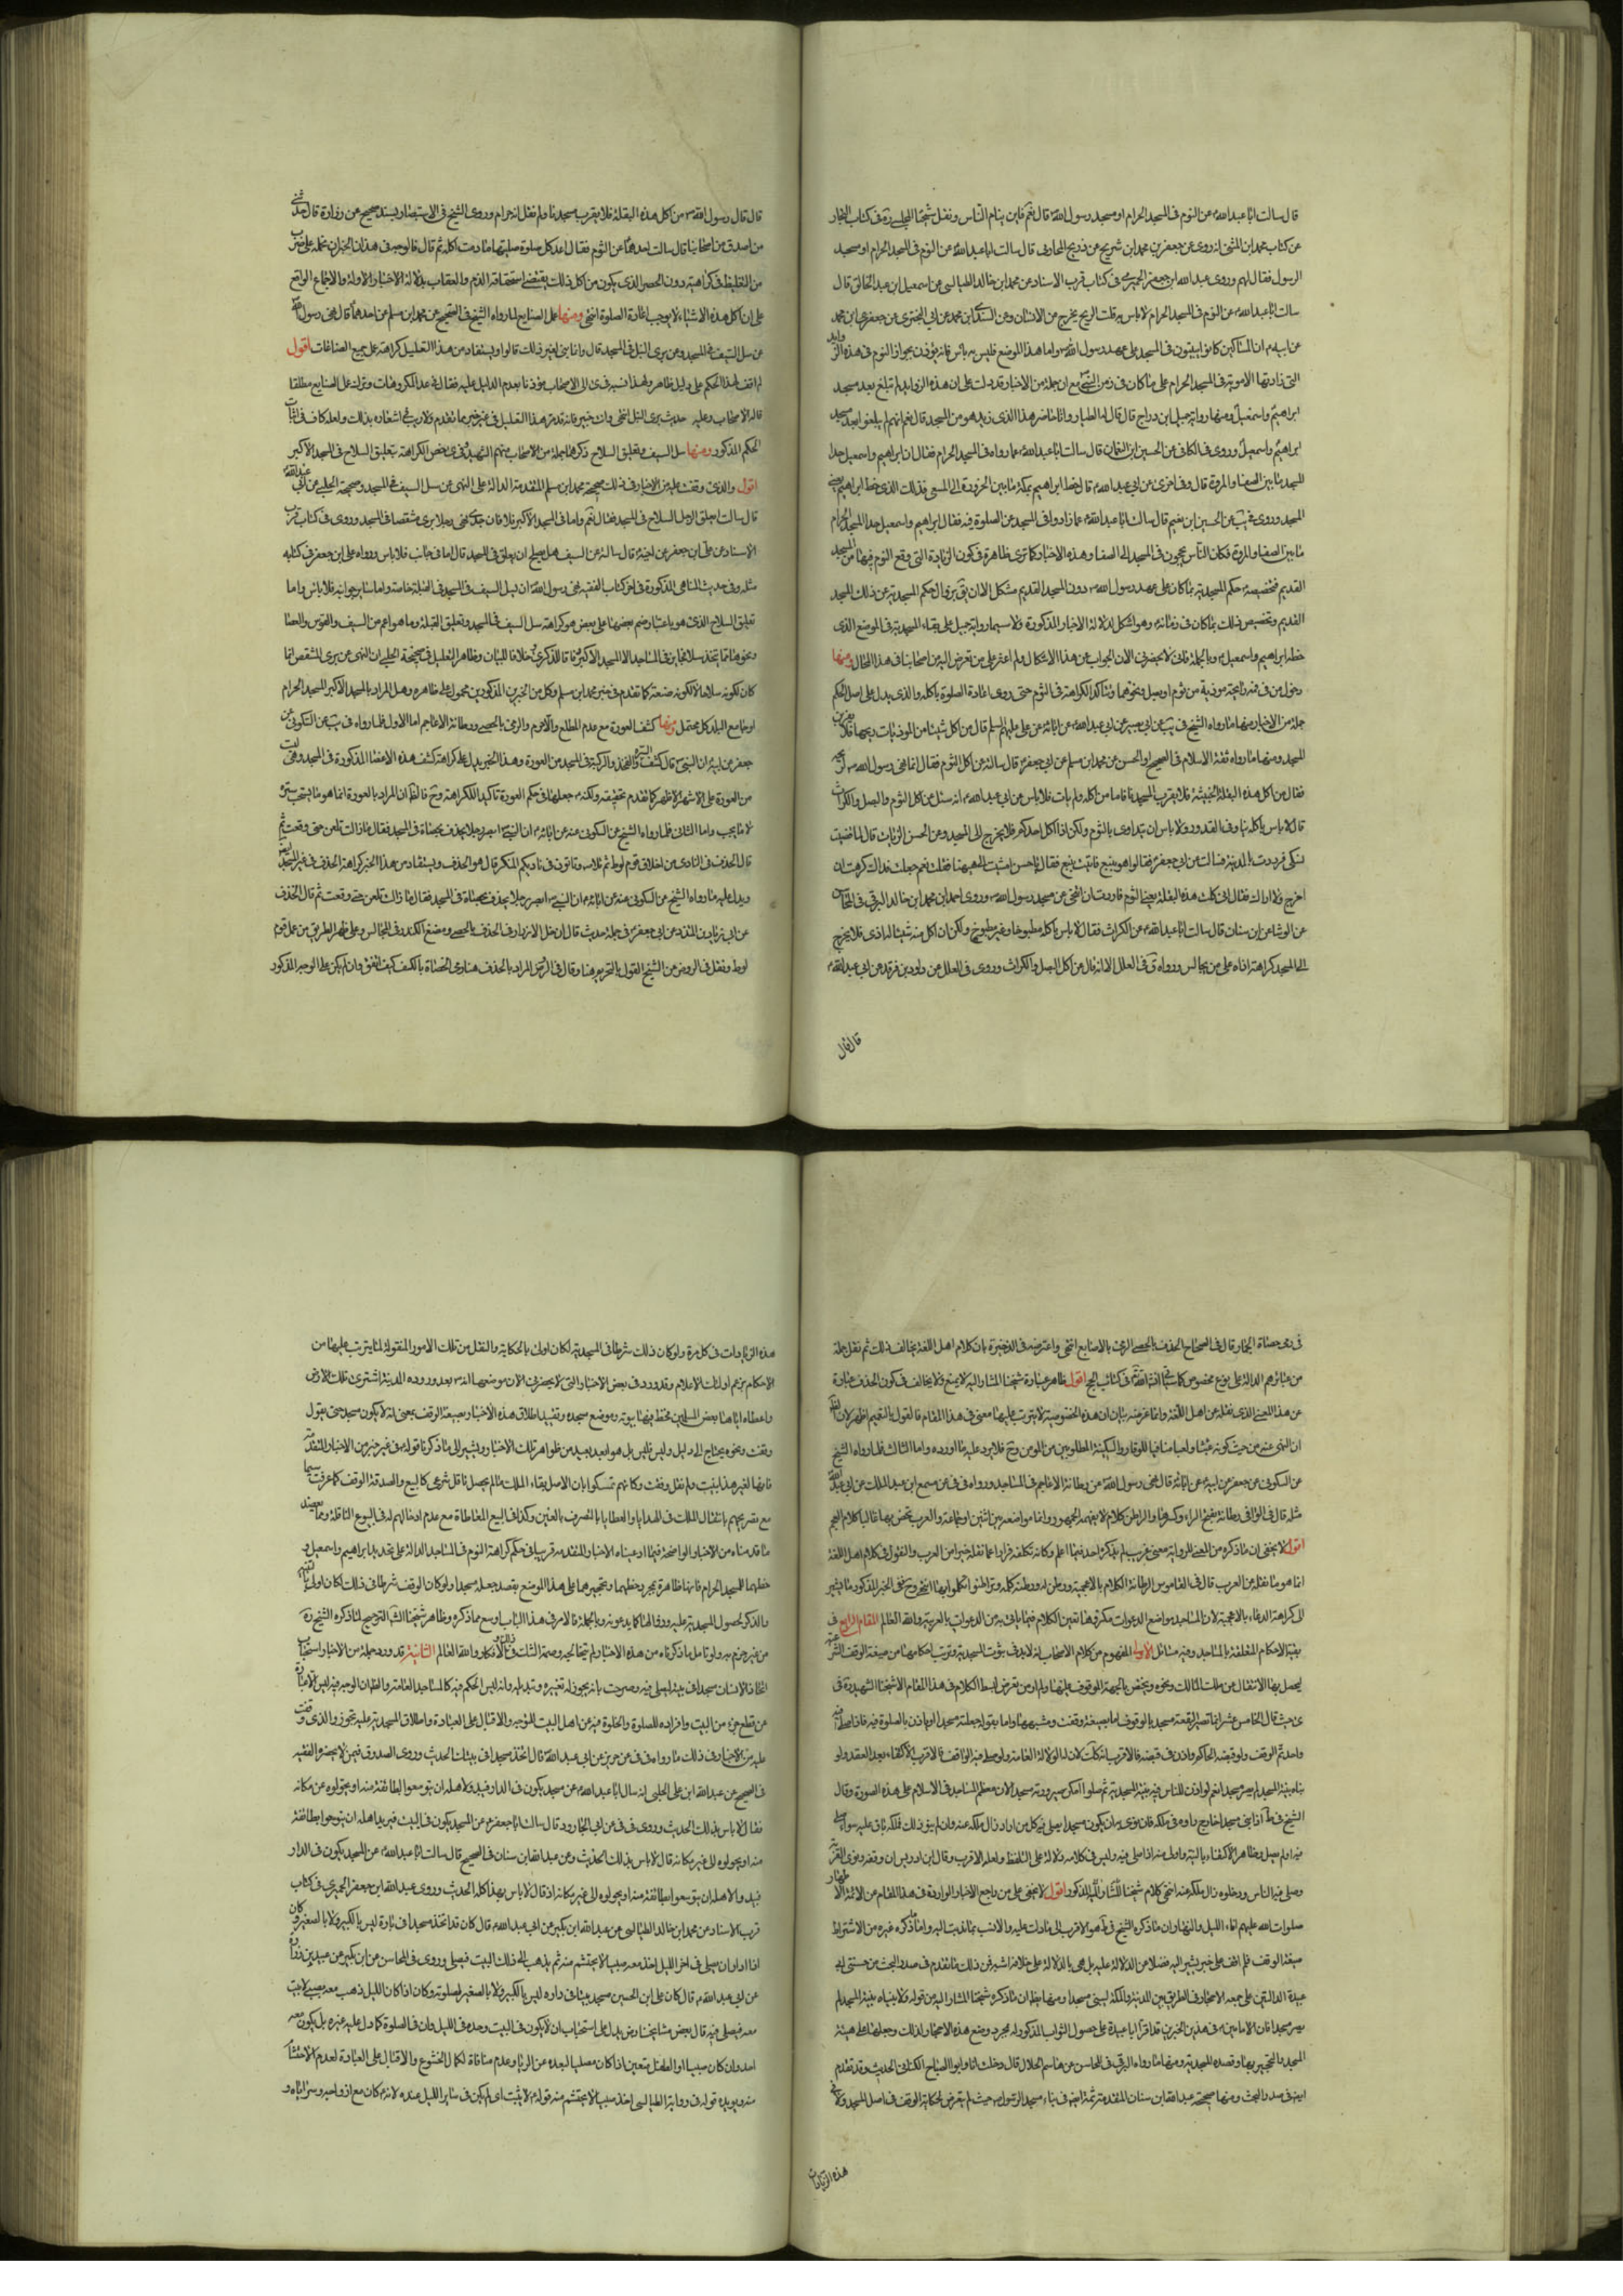 قال سالت ابا عبد الله عن النوم فى المسجد الحرام او مسجد رسول الله قال نعم فاين ينام الناس ونقل شيخنا المجلسي ره فى كتاب البحار
عن كتاب محمد ابن المثنى انه روى عن جعفر بن محمد ابن شريح عن ذريح المحاربى قال سالت ابا عبد الله عن النوم فى المسجد الحرام او مسجد
الرسول فقال نعم وروى عبد الله ابن جعفر الحميرى فى كتاب قرب الاسناد عن محمد ابن خالد الطيالسى عن اسمعيل ابن عبد الخالق قال
سالت ابا عبد الله عن النوم فى المسجد الحرام لا باس به قلت الريح يخرج من الانسان وعن السندى ابن محمد عن ابى البخترى عن جعفر ابن محمد
عن ابيه ان المساكين كانوا يبيتون فى المسجد على عهد رسول الله واما هذا الموضع فليس به باس فانه يؤذن بجواز النوم فى هذه
التى زادتها الاموية فى المسجد الحرام على ما كان فى زمن النبى مع ان جملة من الاخبار قد دلت على ان هذه الزوايد لم تبلغ بعد مسجد
ابراهيم واسمعيل ومنها رواية جميل ابن دراج قال قال له الطيار وانا حاضر هذا الذى زيد هو من المسجد قال نعم انهم لم يبلغوا بعد مسجد
ابراهيم واسمعيل وروى فى الكافى عن الحسين ابن النعمان قال سالت ابا عبد الله عما زادوا فى المسجد الحرام فقال ان ابراهيم واسمعيل حدا
المسجد ما بين الصفا والمروة قال وفى اخرى عن ابى عبد الله قال خط ابراهيم بمكة ما بين الحزورة الى المسعى فذلك الذى خط ابراهيم يعنى
المسجد وروى عن الحسين ابن نعيم قال سالت ابا عبد الله عما زادوا فى المسجد عن الصلوة فيه فقال ابراهيم واسمعيل حدا المسجد الحرام
ما بين الصفا والمروة فكان الناس يحجون فى المسجد الى الصفا وهذه الاخبار كما ترى ظاهرة فى كون الزيادة التى وقع النوم فيها من المسجد
القديم فتخصيصه حكم المسجدية بما كان على عهد رسول الله دون المسجد القديم مشكل الا ان يق بزوال حكم المسجدية عن ذلك المسجد
القديم وتخصيص ذلك بما كان فى زمانه وهو اشكل لدلالة الاخبار المذكورة ولا سيما رواية جميل على بقاء المسجدية فى الموضع الذى
خطه ابراهيم واسمعيل وبالجملة فانى لا يحضرنى الان الجواب عن هذا الاشكال ولم اعثر على من تعرض اليه من اصحابنا فى هذا المجال ومنها
دخول من فى فمه رائحة موذية من ثوم او بصل ونحوهما ويتاكد الكراهة فى الثوم حتى روى اعادة الصلوة باكله والذى يدل على اصل الحكم
جملة من الاخبار منها ما رواه الشيخ فى عن ابى بصير عن ابى عبد الله عن ابائه عن على عليهم السلم قال من اكل شيئا من الموذيات ريحها فلا يقربن
المسجد ومنها ما رواه ثقة الاسلام فى الصحيح او الحسن عن محمد ابن مسلم عن ابى جعفر قال سالته عن اكل الثوم فقال انما نهى رسول الله لريحه
فقال من اكل هذه البقلة الخبيثة فلا يقرب المسجد فاما من اكله ولم يات فلا باس عن ابى عبد الله انه سئل عن اكل الثوم والبصل والكراث
قال لا باس باكله نيا وفى القدور ولا باس ان يتداوى بالثوم ولكن اذا اكل احدكم فلا يخرج الى المسجد وعن الحسن الزيات قال لما قضيت
نسكى فمررت بالمدينة فسالت عن ابى جعفر فقالوا هو بينبع فاتيت ينبع فقال يا حسن اتيت الى ههنا فقلت نعم جعلت فداك كرهت ان
اخرج ولا اراك فقال انى اكلت هذه البقلة يعنى الثوم فاردت ان اتنحى عن مسجد رسول الله وروى احمد ابن محمد ابن خالد البرقى فى المحاسن
عن الوشا عن ابن سنان قال سالت ابا عبد الله عن الكراث فقال لا باس باكله مطبوخا وغير مطبوخ ولكن ان اكل منه شيئا له اذى فلا يخرج
الى المسجد كراهة اذاه على من يجالس ورواه ق فى العلل الا انه قال من اكل البصل والكراث وروى فى العلل عن داود بن فرقد عن ابى عبد الله
قال قال
قال قال رسول الله من اكل هذه البقلة فلا يقرب مسجدنا ولم نقل انه حرام وروى الشيخ فى الاستبصار بسند صحيح عن زرارة قال حدثنى
من اصدق من اصحابنا قال سالت احدهما عن الثوم فقال اعد كل صلوة صليتها ما دمت اكله ثم قال فالوجه فى هذا ان الخبران نحمله على ضرب
من التغليظ فى كراهيته دون الحصر الذى يكون من اكل ذلك يقتضى استحقاقه الذم والعقاب بدلالة الاخبار الاولة والاجماع الواقع
على ان اكل هذه الاشياء لا يوجب اعادة الصلوة انتهى ومنها عمل الصنايع لما رواه الشيخ فى الصحيح عن محمد ابن مسلم عن احدهما قال نهى رسول الله
عن سل السيف فى المسجد وعن برى النبل فى المسجد قال وانما بنى لغير ذلك قالوا ويستفاد من هذا التعليل كراهة عمل جميع الصناعات اقول
لم اقف لهذا الحكم على دليل ظاهر ولهذا نسبه فى الى الاصحاب موذنا بعدم الدليل عليه فقال فى عد المكروهات وترك عمل الصنايع مطلقا
قاله الاصحاب وعليه حديث برى النبل انتهى وانت خبير بانه قد مر هذا التعليل فى غير خبر مما تقدم ولا ريب فى اشعاره بذلك ولعله كاف فى اثبات
الحكم المذكور ومنها سل السيف وتعليق السلاح ذكرهما جملة من الاصحاب منهم الشهيد فى وخص الكراهة بتعليق السلاح فى المسجد الاكبر
اقول والذى وقفت عليه من الاخبار فى ذلك صحيحة محمد ابن مسلم المتقدمة الدالة على النهى عن سل السيف فى المسجد وصحيحة الحلبى عن ابى عبد الله
قال سالت ايعلق الرجل السلاح فى المسجد فقال نعم واما فى المسجد الاكبر فلا فان جدى نهى رجلا برى مشقصا فى المسجد وروى فى كتاب قرب
الاسناد عن على ابن جعفر عن اخيه قال سالته عن السيف هل يصلح ان يعلق فى المسجد قال اما فى جانب فلا باس ورواه على ابن جعفر فى كتابه
مثله وفى حديث المناهى المذكورة فى اخر كتاب الفقيه نهى رسول الله ان يسل السيف فى المسجد فى القبلة خاصة واما ساير جوانبه فلا باس واما
تعليق السلاح الذى هو باعتبار ضم بعضها على بعض هو كراهة سل السيف فى المسجد وتعليق القبلة وما هو اعم من السيف والقوس والعصا
ونحوها مما يتخذ سلاحا فى المساجد الا المسجد الاكبر خلافا للبيان وظاهر التعليل فى صحيحة الحلبى ان النهى عن برى المشقص انما
كان لكونه سلاحا لا لكونه صنعة كما تقدم فى خبر محمد ابن مسلم وكل من الخبرين المذكورين محمول على ظاهره وهل المراد بالمسجد الاكبر المسجد الحرام
او جامع البلد كل محتمل ومنها كشف العورة مع عدم المطلع والا حرم والرمى بالحصى ورطانة الاعاجم اما الاول فلما رواه فى عن السكونى عن
جعفر عن ابيه ان النبى قال كشف السرة والفخذ والركبة فى المسجد من العورة وهذا الخبر يدل على كراهة كشف هذه الاعضاء المذكورة فى المسجد وهى ليست
من العورة على الاشهر الاظهر كما تقدم تحقيقه ولكنه جعلها فى حكم العورة تاكيدا للكراهة وح فالظ ان المراد بالعورة انما هو ما يستحب ستره
لا ما يجب واما الثانى فلما رواه الشيخ عن السكونى عنه عن ابائه ان النبى ابصر رجلا يخذف بحصاة فى المسجد فقال ما زالت تلعن حتى وقعت ثم
قال الخذف فى النادى من اخلاق قوم لوط ثم تلا وتاتون فى ناديكم المنكر قال هو الخذف ويستفاد من هذا الخبر كراهة الخذف فى غير المسجد ايضا
ويدل عليه ما رواه الشيخ عن السكونى عنه عن ابائه ان النبى ابصر رجلا يخذف بحصاة فى المسجد فقال ما زالت تلعن حتى وقعت ثم قال الخذف
عن ابى جعفر فى جملة حديث قال ان حل الازرار فى الخذف بالحصى ومضغ الكندر فى المجالس وعلى ظهر الطريق من عمل قوم
لوط ونقل فى الروض عن الشيخ القول بالتحريم هنا وقال فى الروض المراد بالخذف هنا رمى الحصاة بالكف كيف اتفق وان لم يكن على الوجه المذكور
فى رمى حصاة الجمار وقال فى الصحاح الخذف بالحصى الرمى بالاصابع انتهى واعترضه فى الذخيرة بان كلام اهل اللغة يخالف ذلك ثم نقل جملة
من عبائرهم الدالة على نوع مخصوص كما سياتى انشاء الله فى كتاب الحج اقول ظاهر عبارة شيخنا المشار اليه لا يمنع ولا يخالف فى كون الخذف عبارة
عن هذا المعنى الذى نقله عن اهل اللغة وانما غرضه بيان ان هذه الخصوصية لا يترتب عليها معنى فى هذا المقام فالقول بالتعميم اظهر لان
ان النهى عنه من حيث كونه عبثا ولعبا منافيا للوقار والسكينة المطلوبين من المومن وح فلا يرد عليه ما اورده واما الثالث فلما رواه الشيخ
عن السكونى عن جعفر عن ابيه عن ابائه قال نهى رسول الله عن رطانة الاعاجم فى المساجد ورواه فى فى عن مسمع ابن عبد الملك عن ابى عبد الله
مثله قال فى الوافى رطانة بفتح الراء وكسرها والتراطن كلام لا يفهمه الجمهور وانما مواضعة بين اثنين او جماعة والعرب تخص بها غالبا كلام العجم
اقول لا يخفى ان ما ذكره من المعنى للرواية معنى غريب لم يذكره احد فيما اعلم وكانه تكلفه فرارا عما نقله اخيرا من العرب والمنقول فى كلام اهل اللغة
انما هو ما نقله عن العرب قال فى القاموس الرطانة الكلام بالاعجمية ورطن له ورطنه كلمه وتراطنوا تكلموا بها انتهى وح ففى الخبر المذكور ما يشير
الى كراهة الدعاء بالاعجمية لان المساجد مواضع الدعوات مكروهة تعين الكلام فيها باتى به من الدعوات بالعربية والله العالم المقام الرابع فى
بقية الاحكام المتعلقة بالمساجد وفيه مسائل الاولى المفهوم من كلام الاصحاب انه لا بد فى ثبوت المسجدية وترتب احكامها من صيغة الوقف الشرعية
ليحصل بها الانتقال من ملك المالك ونحوه ويختص بالجهة الموقوف عليها ولم ار من تعرض لبسط الكلام فى هذا المقام الا شيخنا الشهيد ره فى
حيث قال الخامس عشر انما تصير البقعة مسجدا بالوقوف اما بصيغة وقفت وشبهها واما بقوله جعلته مسجدا وياذن بالصلوة فيه فاذا صلى فيه
واحد تم الوقف ولو قبضه الحاكم واذن فى قبضه فالاقرب انه كك لان له الولاية العامة ولو صلى فيه الواقف فالاقرب الاكتفاء بعد العقد ولو
بناه بنية المسجد لم يصر مسجدا نعم لو اذن للناس فيه بنية المسجدية ثم صلوا امكن صيرورته مسجدا لان معظم المساجد فى الاسلام على هذه الصورة وقال
الشيخ فى ط اذا بنى مسجدا خارج داره فى ملكه فان نوى به ان يكون مسجدا يصلى فيه كل من اراد زال ملكه عنه وان لم ينو ذلك فملكه باق عليه سواء صلى
فيه او لم يصل وظاهره الاكتفاء بالنية واولى منه اذا صلى فيه وليس فى كلامه دلالة على التلفظ ولعله الاقرب وقال ابن ادريس ان وقفه ونوى القربة
وصلى فيه الناس ودخلوه زال ملكه عنه انتهى كلام شيخنا المشار اليه المذكور اقول لا يخفى على من راجع الاخبار الواردة فى هذا المقام من الائمة الاطهار
صلوات الله عليهم اناء الليل والنهار ان ما ذكره الشيخ فى ط هو الاقرب الى ما دلت عليه والانسب بما ذهبت اليه واما ما ذكره غيره من الاشتراط
صيغة الوقف فلم اقف على خبر يشير اليه فضلا عن الدلالة عليه بل هى بالدلالة على خلافه اشبه فمن ذلك ما تقدم فى صدر البحث من حسنتى ابى
عبيدة الدالتين على جمعه الاحجار فى الطريق بين المدينة والمكة لبنى مسجدا ومنها بطلان ما ذكره شيخنا المشار اليه من قوله ولا بناه بنية المسجد لم
يصر مسجدا فان الامامين فى هذين الخبرين قد اقرا ابا عبيدة على حصول الثواب المذكور له بمجرد وضع هذه الاحجار لذلك وجعلها على هيئة
المسجد والتحجير بها وقصده للمسجدية ومنها ما رواه البرقى فى المحاسن عن هاشم الحلال قال دخلت انا وابو الصباح الكنانى الحديث وقد تقدم
ايض فى صدر البحث ومنها صحيحة عبد الله ابن سنان المتقدمة ثمة ايض فى بناء مسجد الرسول حيث لم يتعرض لحكاية الوقف فى اصل المسجد ولا فى
هذه الزيادات
هذه الزيادات فى كل مرة ولو كان ذلك شرطا فى المسجدية لكان اولى بالحكاية والنقل من تلك الامور المنقولة لما يترتب عليها من
الاحكام بزعم اولئك الاعلام وقد ورد فى بعض الاخبار والتى لا يحضرنى الان موضعها انه بعد وروده المدينة اشترى تلك الارض
واعطاه اياها بعض المسلمين فخط فيها بيوته وموضع مسجده وتقييد اطلاق هذه الاخبار بصيغة الوقف بمعنى انه لا يكون مسجد حتى يقول
وقفت ونحوه يحتاج الى دليل وليس فليس بل هو ابعد بعيد عن ظواهر تلك الاخبار ويشير الى ما ذكرنا قوله فى غير خبر من الاخبار المتقدمة
فانها لغير هذا بنيت ولم نقل وقفت وكانهم تمسكوا بان الاصل بقاء الملك ما لم يحصل ناقل شرعى كالبيع والصدقة الوقف كما عرفت سيما
مع تصريحهم بانتقال الملك فى الهدايا والعطايا بالتصرف بالعين وكذا فى البيع المعاطاة مع عدم ادخالهم له فى البيوع الناقلة ومما يعضد
ما قدمناه من الاخبار الواضحة فيما ادعيناه الاخبار المتقدمة قريبا فى حكم كراهة النوم فى المساجد الدالة على تحديد ابراهيم واسمعيل و
خطهما المسجد الحرام فانها ظاهرة بمجرد خطهما وتحجيرهما على هذا الموضع بقصد جعله مسجدا ولو كان الوقف شرطا فى ذلك لكان اولى بالنقل
والذكر لحصول المسجدية عليه دون الخط كما يدعونه وبالجملة فالامر فى هذا الباب اوسع مما ذكروه وظاهر شيخنا الترجيح لما ذكره الشيخ ره
من غير جزم به ولو تامل ما ذكرناه من هذه الاخبار لم يتخالجه وصمة الشك فى ذلك والله العالم الثانية قد ورد جملة من الاخبار استحباب
اتخاذ الانسان مسجدا فى بيته ليصلى فيه وصرحت بانه يجوز له تغييره وتبديله وانه ليس الحكم فيه كالمساجد العامة والظ ان الوجه فيه ليس الا
عن قطع جزء من البيت وافراده للصلوة والخلوة فيه عن اهل البيت للتوجه والاقبال على العبادة واطلاق المسجدية عليه تجوز والذى وقفت
عليه من الاخبار فى ذلك ما رواه فى فى عن حريز عن ابى عبد الله قال اتخذ مسجدا فى بيتك الحديث وروى الصدوق فيمن لا يحضره الفقيه
فى الصحيح عن عبد الله ابن على الحلبى انه سال ابا عبد الله عن مسجد يكون فى الدار فيبدو لاهله ان يتوسعوا بطائفة منه او يحولوه عن مكانه
فقال لا باس بذلك الحديث وروى فى فى عن ابى الجارود قال سالت ابا جعفر عن المسجد يكون فى البيت فيريد اهله ان يتوسعوا بطائفة
منه او يحولوه الى غير مكانه قال لا باس بذلك الحديث وعن عبد الله ابن سنان فى الصحيح قال سالت ابا عبد الله عن المسجد يكون فى الدار
فيبدو لاهله ان يتوسعوا بطائفة منه او يحولوه الى غير مكانه اذ قال لا باس بهذا كله الحديث وروى عبد الله ابن جعفر الحميرى فى كتاب
قرب الاسناد عن محمد ابن خالد الطيالسى عن عبد الله ابن بكير عن ابى عبد الله قال كان قد اتخذ مسجدا فى داره ليس بالكبير ولا بالصغير وكان
اذا اراد ان يصلى فى اخر الليل اخذ معه صبيا لا يحتشم منه ثم يذهب الى ذلك البيت فيصلى وروى فى المحاسن عن ابن بكير عن عبيد بن زرارة
عن ابى عبد الله قال كان على ابن الحسين مسجد بيتا فى داره ليس بالكبير ولا بالصغير لصلوته وكان اذا كان الليل ذهب معه بصبى لا يبيت
معه فيصلى فيه قال بعض مشايخنا رض يدل على استحباب ان لا يكون فى البيت وحده فى الليل وان فى الصلوة كما دل عليه غيره بل يكون معه
احد وان كان صبيا او الطفل يتعين اذا كان مصليا لبعده عن الريا وعدم منافاة لكمال الخشوع والاقبال على العبادة لعدم الاحتشام
منه ويويده قوله فى رواية الطيالسى اخذ صبيا لا يحتشم منه قوله لا يبيت اى لم يكن فى ساير الليل عنده لانه كان مع ازواجه وسراياه و